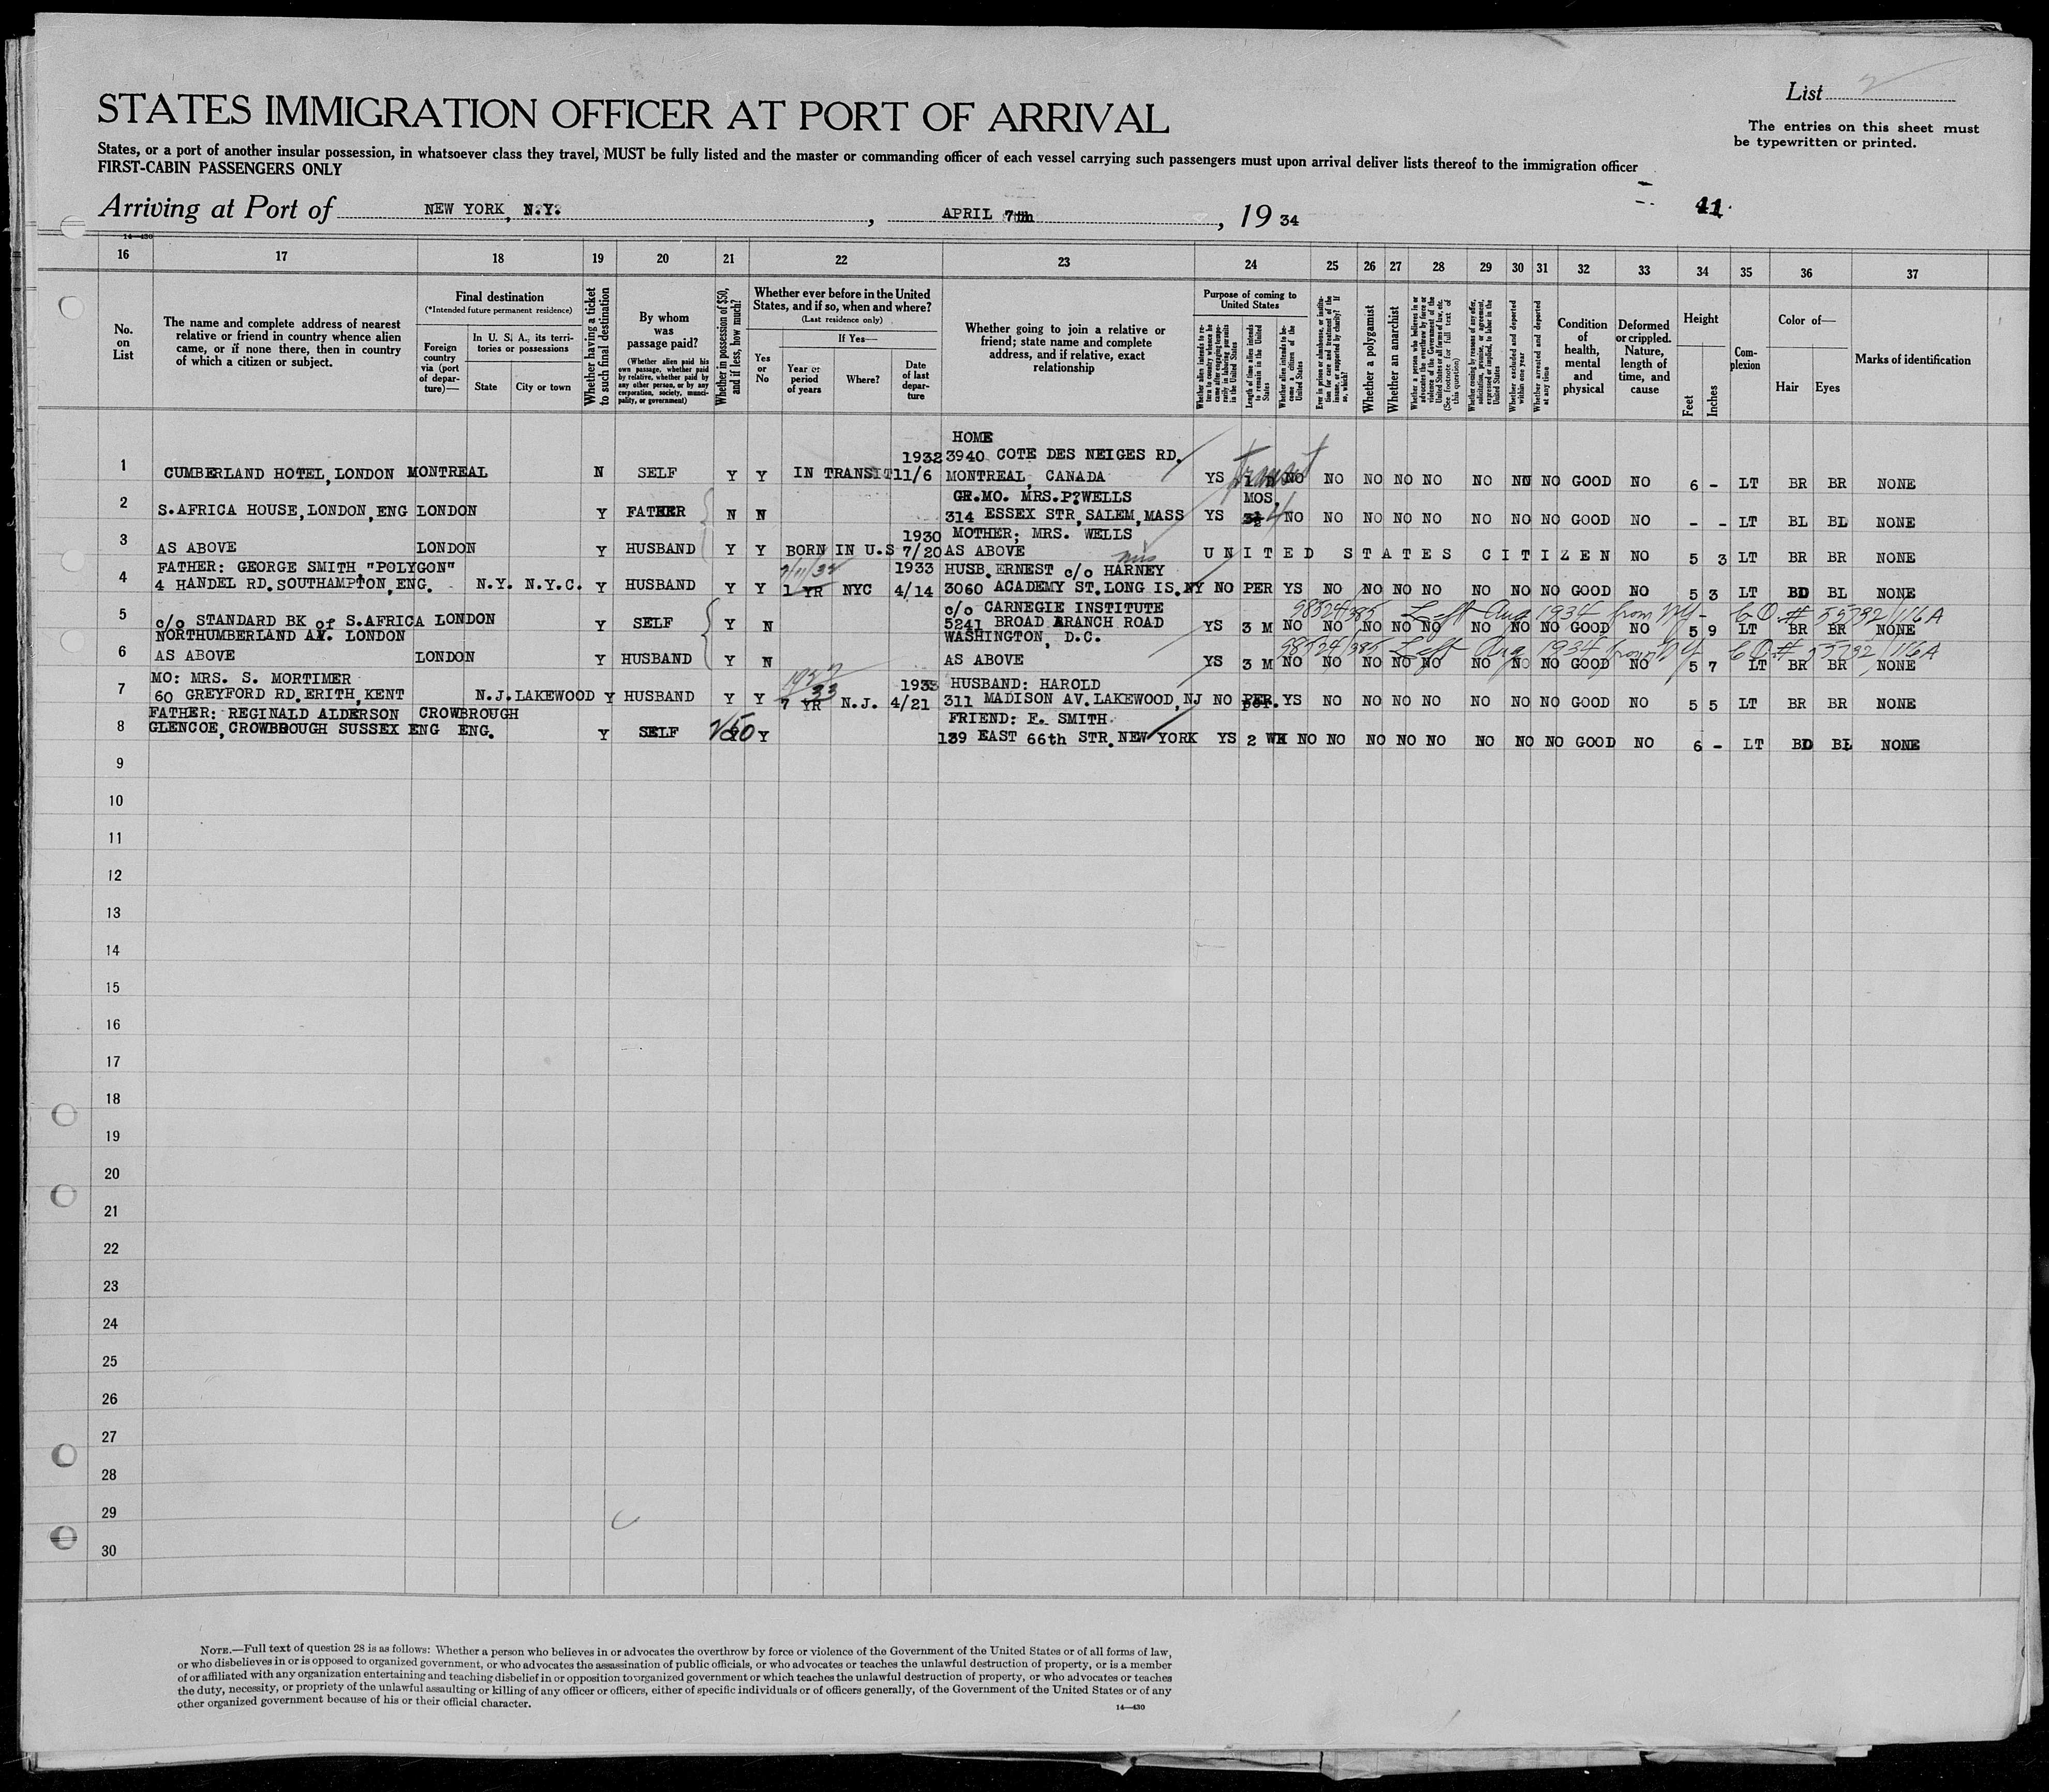 List 2
STATES IMMIGRATION OFFICER AT PORT OF ARRIVAL
The entries on this sheet must
be typewritten or printed.
States, or a port of another insular possession, in whatsoever class they travel, MUST be fully listed and the master or commanding officer of each vessel carrying such passengers must upon arrival deliver lists thereof to the immigration officer
FIRST-CABIN PASSENGERS ONLY
Arriving at Port of NEW YORK, N.Y. , APRIL 7th , 19 34
41
14—430
16 17 18 19 20 21 22 23 24 25 26 27 28 29 30 31 32 33 34 35 36 37
No. on List
The name and complete address of nearest relative or friend in country whence alien came, or if none there, then in country of which a citizen or subject.
Final destination
(*Intended future permanent residence)
Foreign country via (port of departure)—
In U. S. A., its territories or possessions
State
City or town
Whether having a ticket to such final destination
By whom was passage paid?
(Whether alien paid his own passage, whether paid by relative, whether paid by any other person, or by any corporation, society, municipality, or government)
Whether in possession of $50, and if less, how much?
Whether ever before in the United States, and if so, when and where?
(Last residence only)
Yes or No
If Yes—
Year or period of years
Where?
Date of last departure
Whether going to join a relative or friend; state name and complete address, and if relative, exact relationship
Purpose of coming to United States
Whether alien intends to return to country whence he came after engaging temporarily in laboring pursuits in the United States
Length of time alien intends to remain in the United States
Whether alien intends to become a citizen of the United States
Ever in prison or almshouse, or institution for care and treatment of the insane, or supported by charity? If so, which?
Whether a polygamist
Whether an anarchist
Whether a person who believes in or advocates the overthrow by force or violence of the Government of the United States or all forms of law, etc. (See footnote for full text of this question)
Whether coming by reason of any offer, solicitation, promise, or agreement, expressed or implied, to labor in the United States
Whether excluded and deported within one year
Whether arrested and deported at any time
Condition of health, mental and physical
Deformed or crippled. Nature, length of time, and cause
Height
Feet
Inches
Complexion
Color of—
Hair
Eyes
Marks of identification
HOME
1932 3940 COTE DES NEIGES RD.
1 CUMBERLAND HOTEL, LONDON MONTREAL N SELF Y Y IN TRANSIT 11/6 MONTREAL, CANADA YS Transit NO NO NO NO NO NO NO NO GOOD NO 6 - LT BR BR NONE
GR.MO. MRS.P?WELLS MOS.
2 S.AFRICA HOUSE, LONDON, ENG LONDON Y FATHER N N 314 ESSEX STR, SALEM, MASS YS 4 NO NO NO NO NO NO NO NO GOOD NO - - LT BL BL NONE
1930 MOTHER; MRS. WELLS
3 AS ABOVE LONDON Y HUSBAND Y Y BORN IN U.S 7/20 AS ABOVE UNITED STATES CITIZEN NO 5 3 LT BR BR NONE
FATHER: GEORGE SMITH "POLYGON" 1933 HUSB. ERNEST c/o HARNEY
4 4 HANDEL RD. SOUTHAMPTON, ENG. N.Y. N.Y.C. Y HUSBAND Y Y 1 YR NYC 4/14 3060 ACADEMY ST. LONG IS. NY NO PER YS NO NO NO NO NO NO NO GOOD NO 5 3 LT BD BL NONE
c/o CARNEGIE INSTITUTE 98524/385 Left Aug 1934 from NY - CO # 55792/116A
5 c/o STANDARD BK of S.AFRICA LONDON Y SELF Y N 5241 BROAD BRANCH ROAD YS 3 M NO NO NO NO NO NO NO NO GOOD NO 5 9 LT BR BR NONE
NORTHUMBERLAND AV. LONDON WASHINGTON, D.C.
98524/385 Left Aug 1934 from NY CO # 55792/116A
6 AS ABOVE LONDON Y HUSBAND Y N AS ABOVE YS 3 M NO NO NO NO NO NO NO NO GOOD NO 5 7 LT BR BR NONE
MO: MRS. S. MORTIMER 1933 HUSBAND: HAROLD
7 60 GREYFORD RD. ERITH, KENT N.J. LAKEWOOD Y HUSBAND Y Y 7 YR N.J. 4/21 311 MADISON AV. LAKEWOOD, NJ NO PER. YS NO NO NO NO NO NO NO GOOD NO 5 5 LT BR BR NONE
FATHER: REGINALD ALDERSON CROWBROUGH FRIEND: F. SMITH
8 GLENCOE, CROWBROUGH SUSSEX ENG ENG. Y SELF 50 Y 139 EAST 66th STR. NEW YORK YS 2 WK NO NO NO NO NO NO NO NO GOOD NO 6 - LT BD BL NONE
9
10
11
12
13
14
15
16
17
18
19
20
21
22
23
24
25
26
27
28
29
30
NOTE.—Full text of question 28 is as follows: Whether a person who believes in or advocates the overthrow by force or violence of the Government of the United States or of all forms of law,
or who disbelieves in or is opposed to organized government, or who advocates the assassination of public officials, or who advocates or teaches the unlawful destruction of property, or is a member
of or affiliated with any organization entertaining and teaching disbelief in or opposition to organized government or which teaches the unlawful destruction of property, or who advocates or teaches
the duty, necessity, or propriety of the unlawful assaulting or killing of any officer or officers, either of specific individuals or of officers generally, of the Government of the United States or of any
other organized government because of his or their official character.
14—430